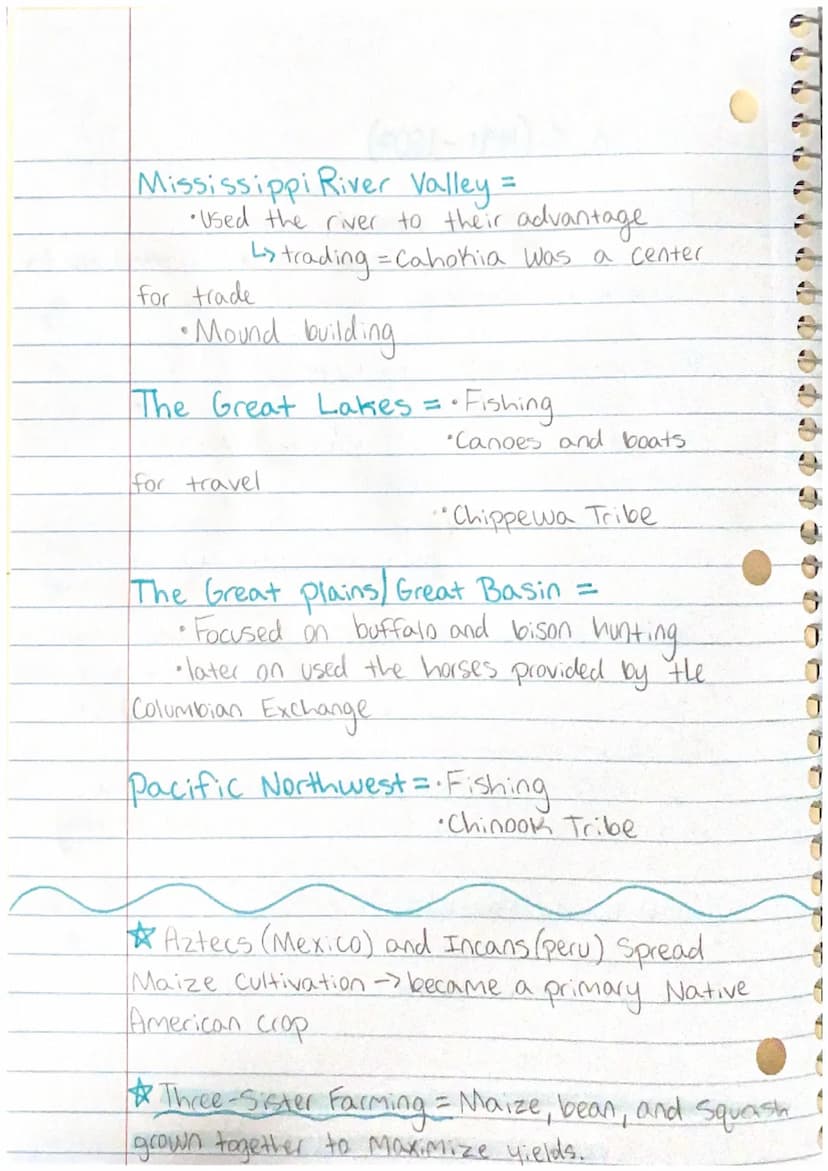 Mississippi River Valley =
• Used the river to their advantage
↳ trading = Cahokia was a center
for trade
• Mound building
The Great Lakes = • Fishing
• Canoes and boats
for travel
• Chippewa Tribe
The Great Plains/Great Basin =
• Focused on buffalo and bison hunting
• later on used the horses provided by the
Columbian Exchange
Pacific Northwest = • Fishing
• Chinook Tribe
☆ Aztecs (Mexico) and Incans (Peru) Spread
Maize Cultivation → became a primary Native
American crop
☆ Three-Sister Farming = Maize, bean, and Squash
grown together to maximize yields.